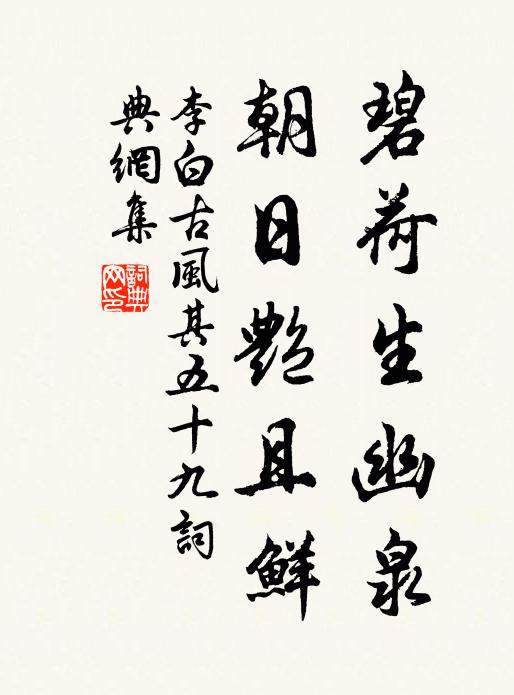 碧荷生幽泉
朝日艷且鮮
李白古風其五十九詞
典網集
詞典
网印